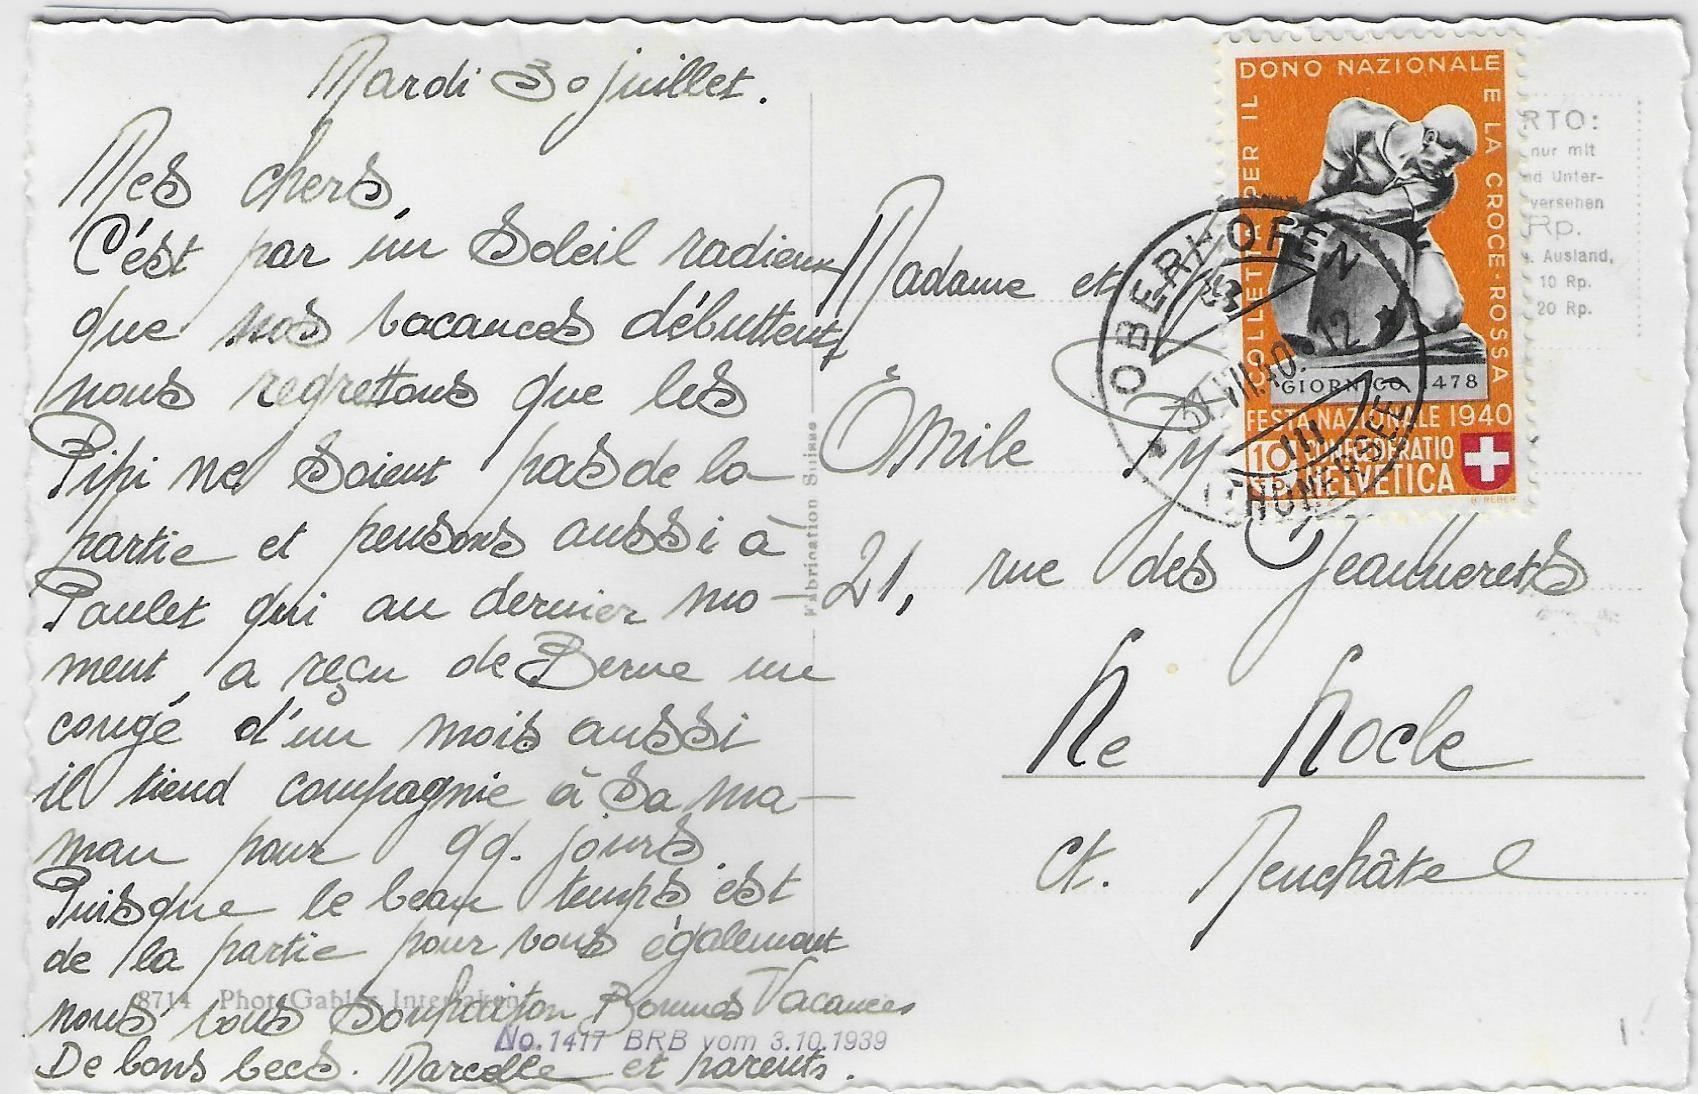 Mardi 30 juillet.
Mes chers,
C'est par un soleil radieux
que nos vacances débuttent,
nous regrettons que les
Pipi ne soient pas de la
partie et pensons aussi à
Paulet qui au dernier mo-
ment, a reçu de Berne un
congé d'un mois aussi
il tiend compagnie à sa ma-
man pour qq. jours.
Puisque le beau temps est
de la partie pour vous également
nous vous souhaiton Bonnes Vacances
De bons becs. Marcelle et parents.
8714 Phot. Gabler, Interlaken
No. 1417 BRB vom 3.10.1939
Fabrication Suisse
Madame et
Émile Py
21, rue des Jeannerets
Le Locle
ct. Neuchâtel
COLLETTA PER IL DONO NAZIONALE E LA CROCE-ROSSA
GIORNICO 1478
FESTA NAZIONALE 1940
10
CONFOEDERATIO
HELVETICA
OBERHOFEN
VII.40. 12
(THUNERSEE)
RTO:
nur mit
nd Unter-
versehen
Rp.
. Ausland,
10 Rp.
20 Rp.